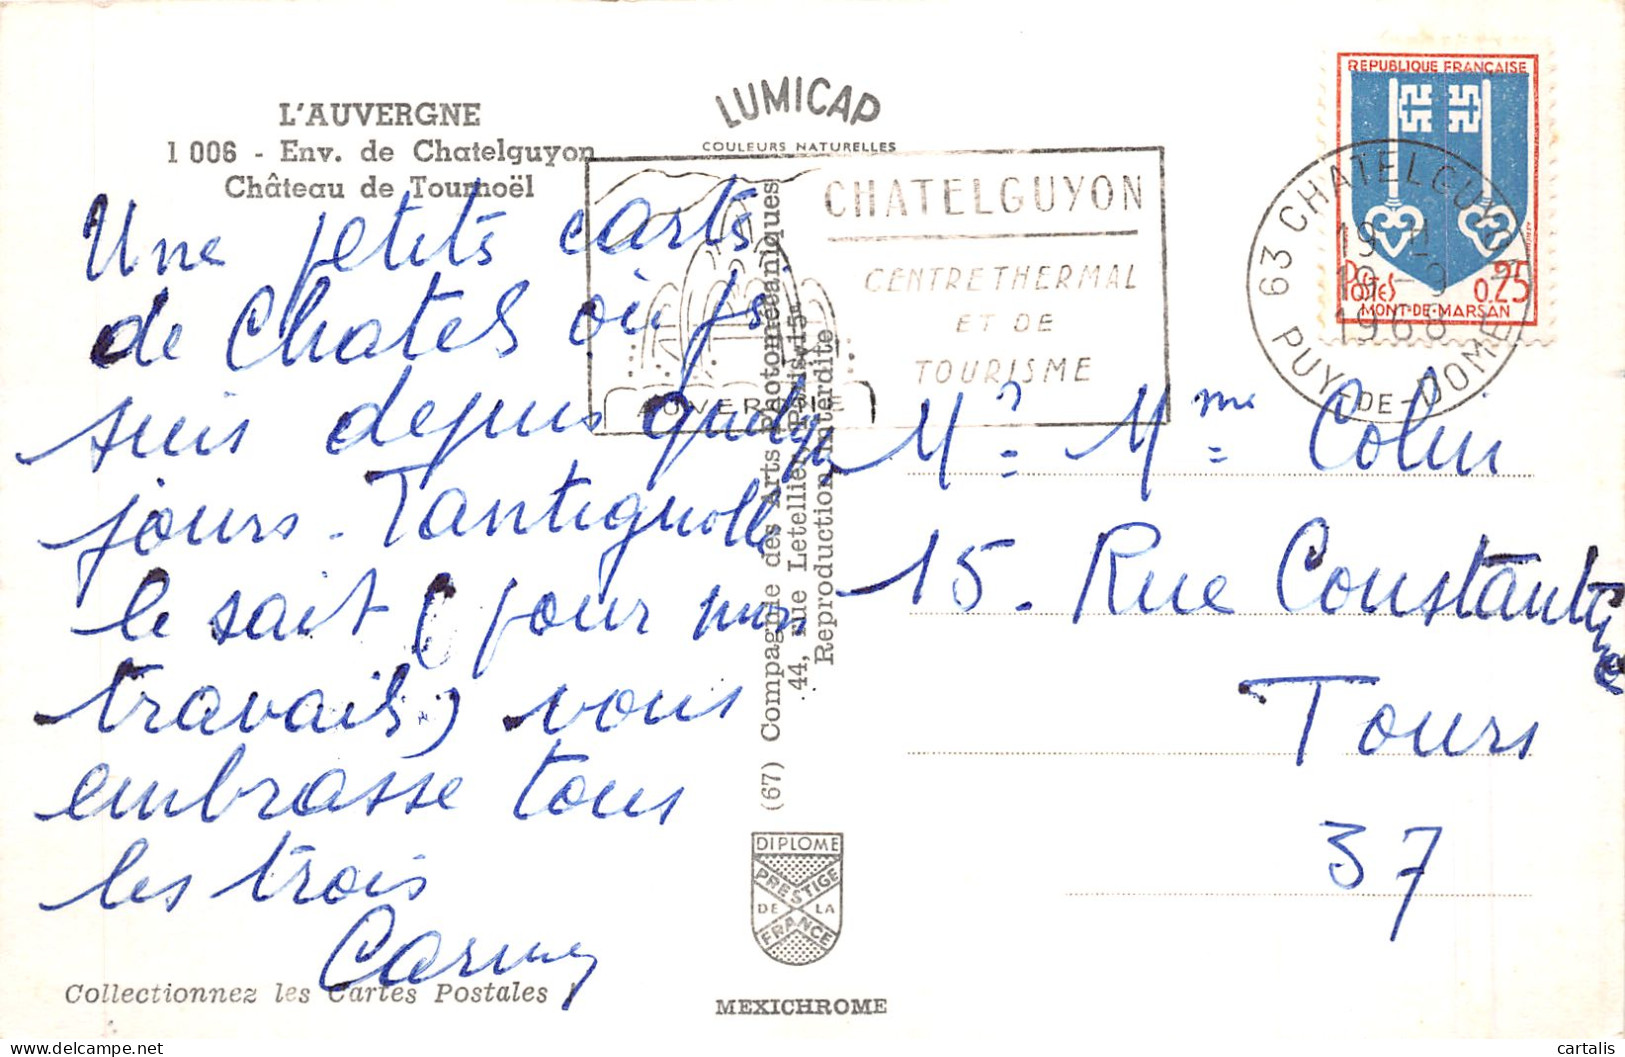 L'AUVERGNE
1 006 - Env. de Chatelguyon
Château de Tournoël
LUMICAP
COULEURS NATURELLES
CHATELGUYON
CENTRE THERMAL
ET DE
TOURISME
AUVERGNE
REPUBLIQUE FRANÇAISE
POSTES 0.25
MONT-DE-MARSAN
63 CHATELGUYON
19 H
19 - 9
1968
PUY-DE-DOME
Une petite carte
de Chatel où je
suis depuis quelques
jours - Tantignolle
le sait (pour mon
travail) vous
embrasse tous
les trois
Carmy
Mr Mme Colin
15 - Rue Constantine
Tours
37
(67) Compagnie des Arts Photomécaniques
44, rue Letellier, Paris-15e
Reproduction interdite
DIPLOME
PRESTIGE
DE LA
FRANCE
Collectionnez les Cartes Postales !
MEXICHROME
cartalis